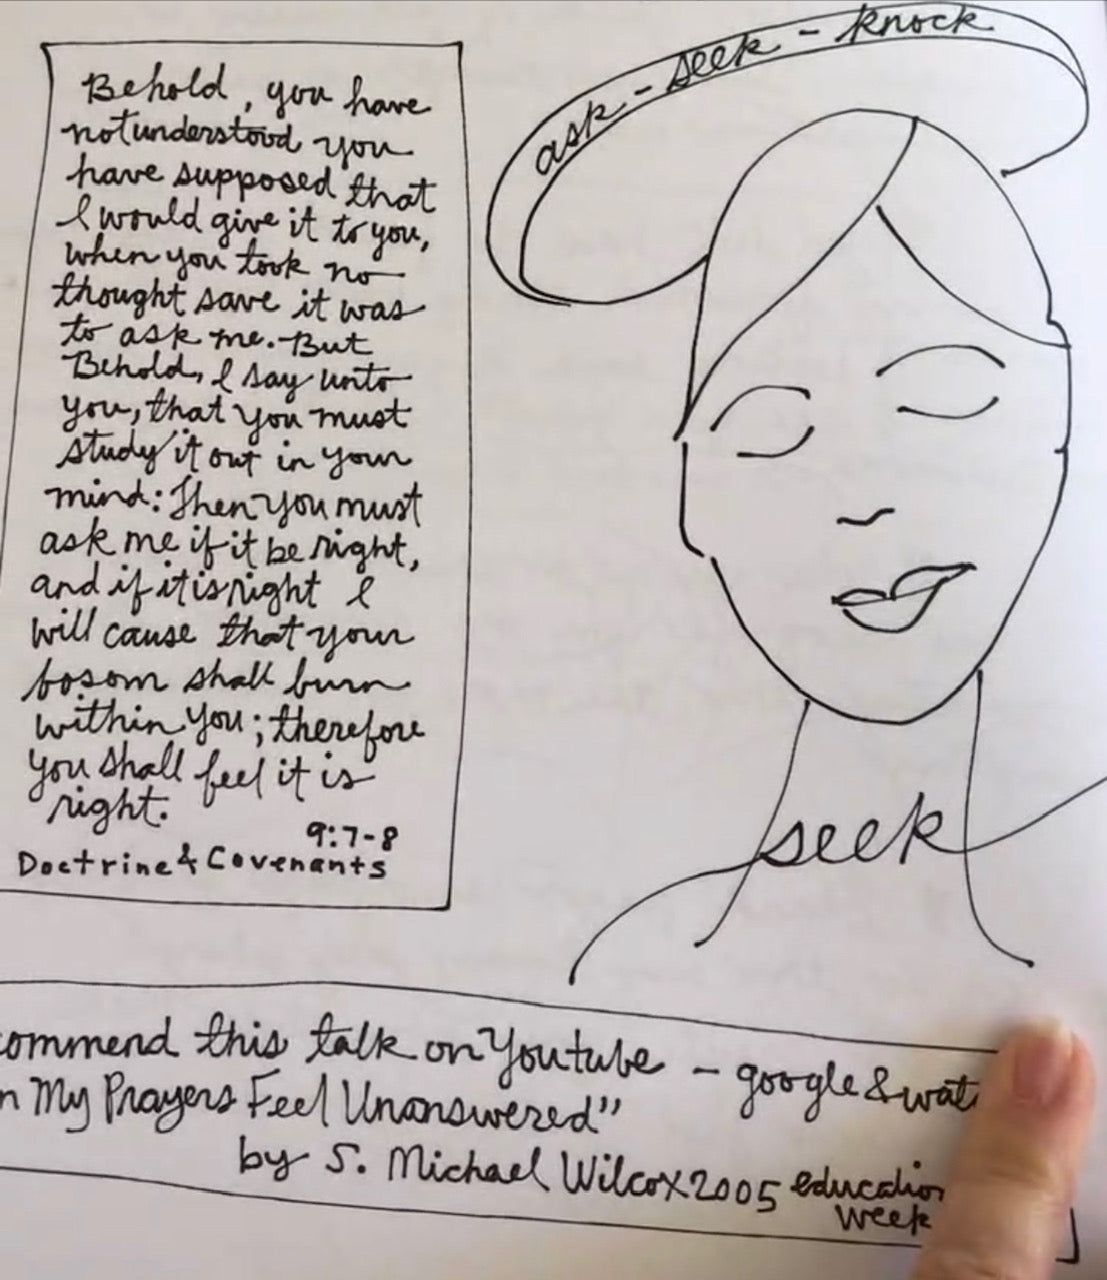 ask - seek - knock
Behold, you have
not understood you
have supposed that
I would give it to you,
when you took no
thought save it was
to ask me. But
Behold, I say unto
you, that you must
study it out in your
mind: Then you must
ask me if it be right,
and if it is right I
will cause that your
bosom shall burn
within you; therefore
you shall feel it is
right.
9:7-8
Doctrine & Covenants
seek
commend this talk on Youtube - google & wat
n My Prayers Feel Unanswered"
by S. Michael Wilcox 2005 education
week